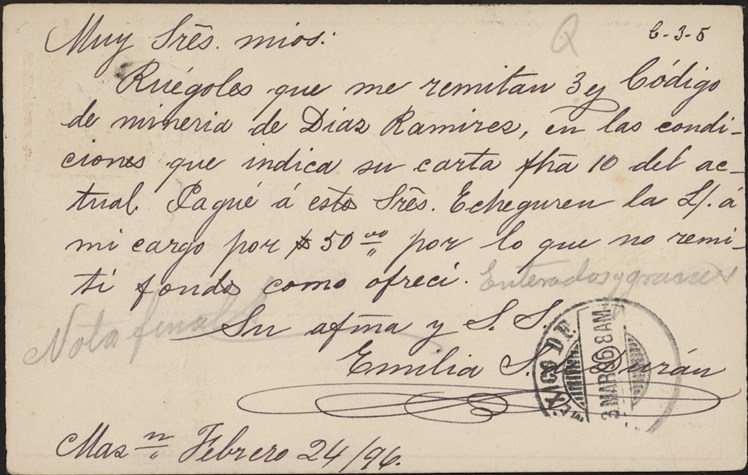 Muy Srēs. mios: Q 6-3-5
Ruégoles que me remitan 3 ej Código
de mineria de Diaz Ramires, en las condi-
ciones que indica su carta fhā 10 del ac-
tual. Pagué á estos Srēs. Echeguren la L/. á
mi cargo por $50 00 por lo que no remi-
ti fondos como ofreci. Enterados y gracias
Su afma y S. S.
Nota final
Emilia S. Durán
MEXICO DF
3 MAR 96 8 AM
Mas. Febrero 24/96.